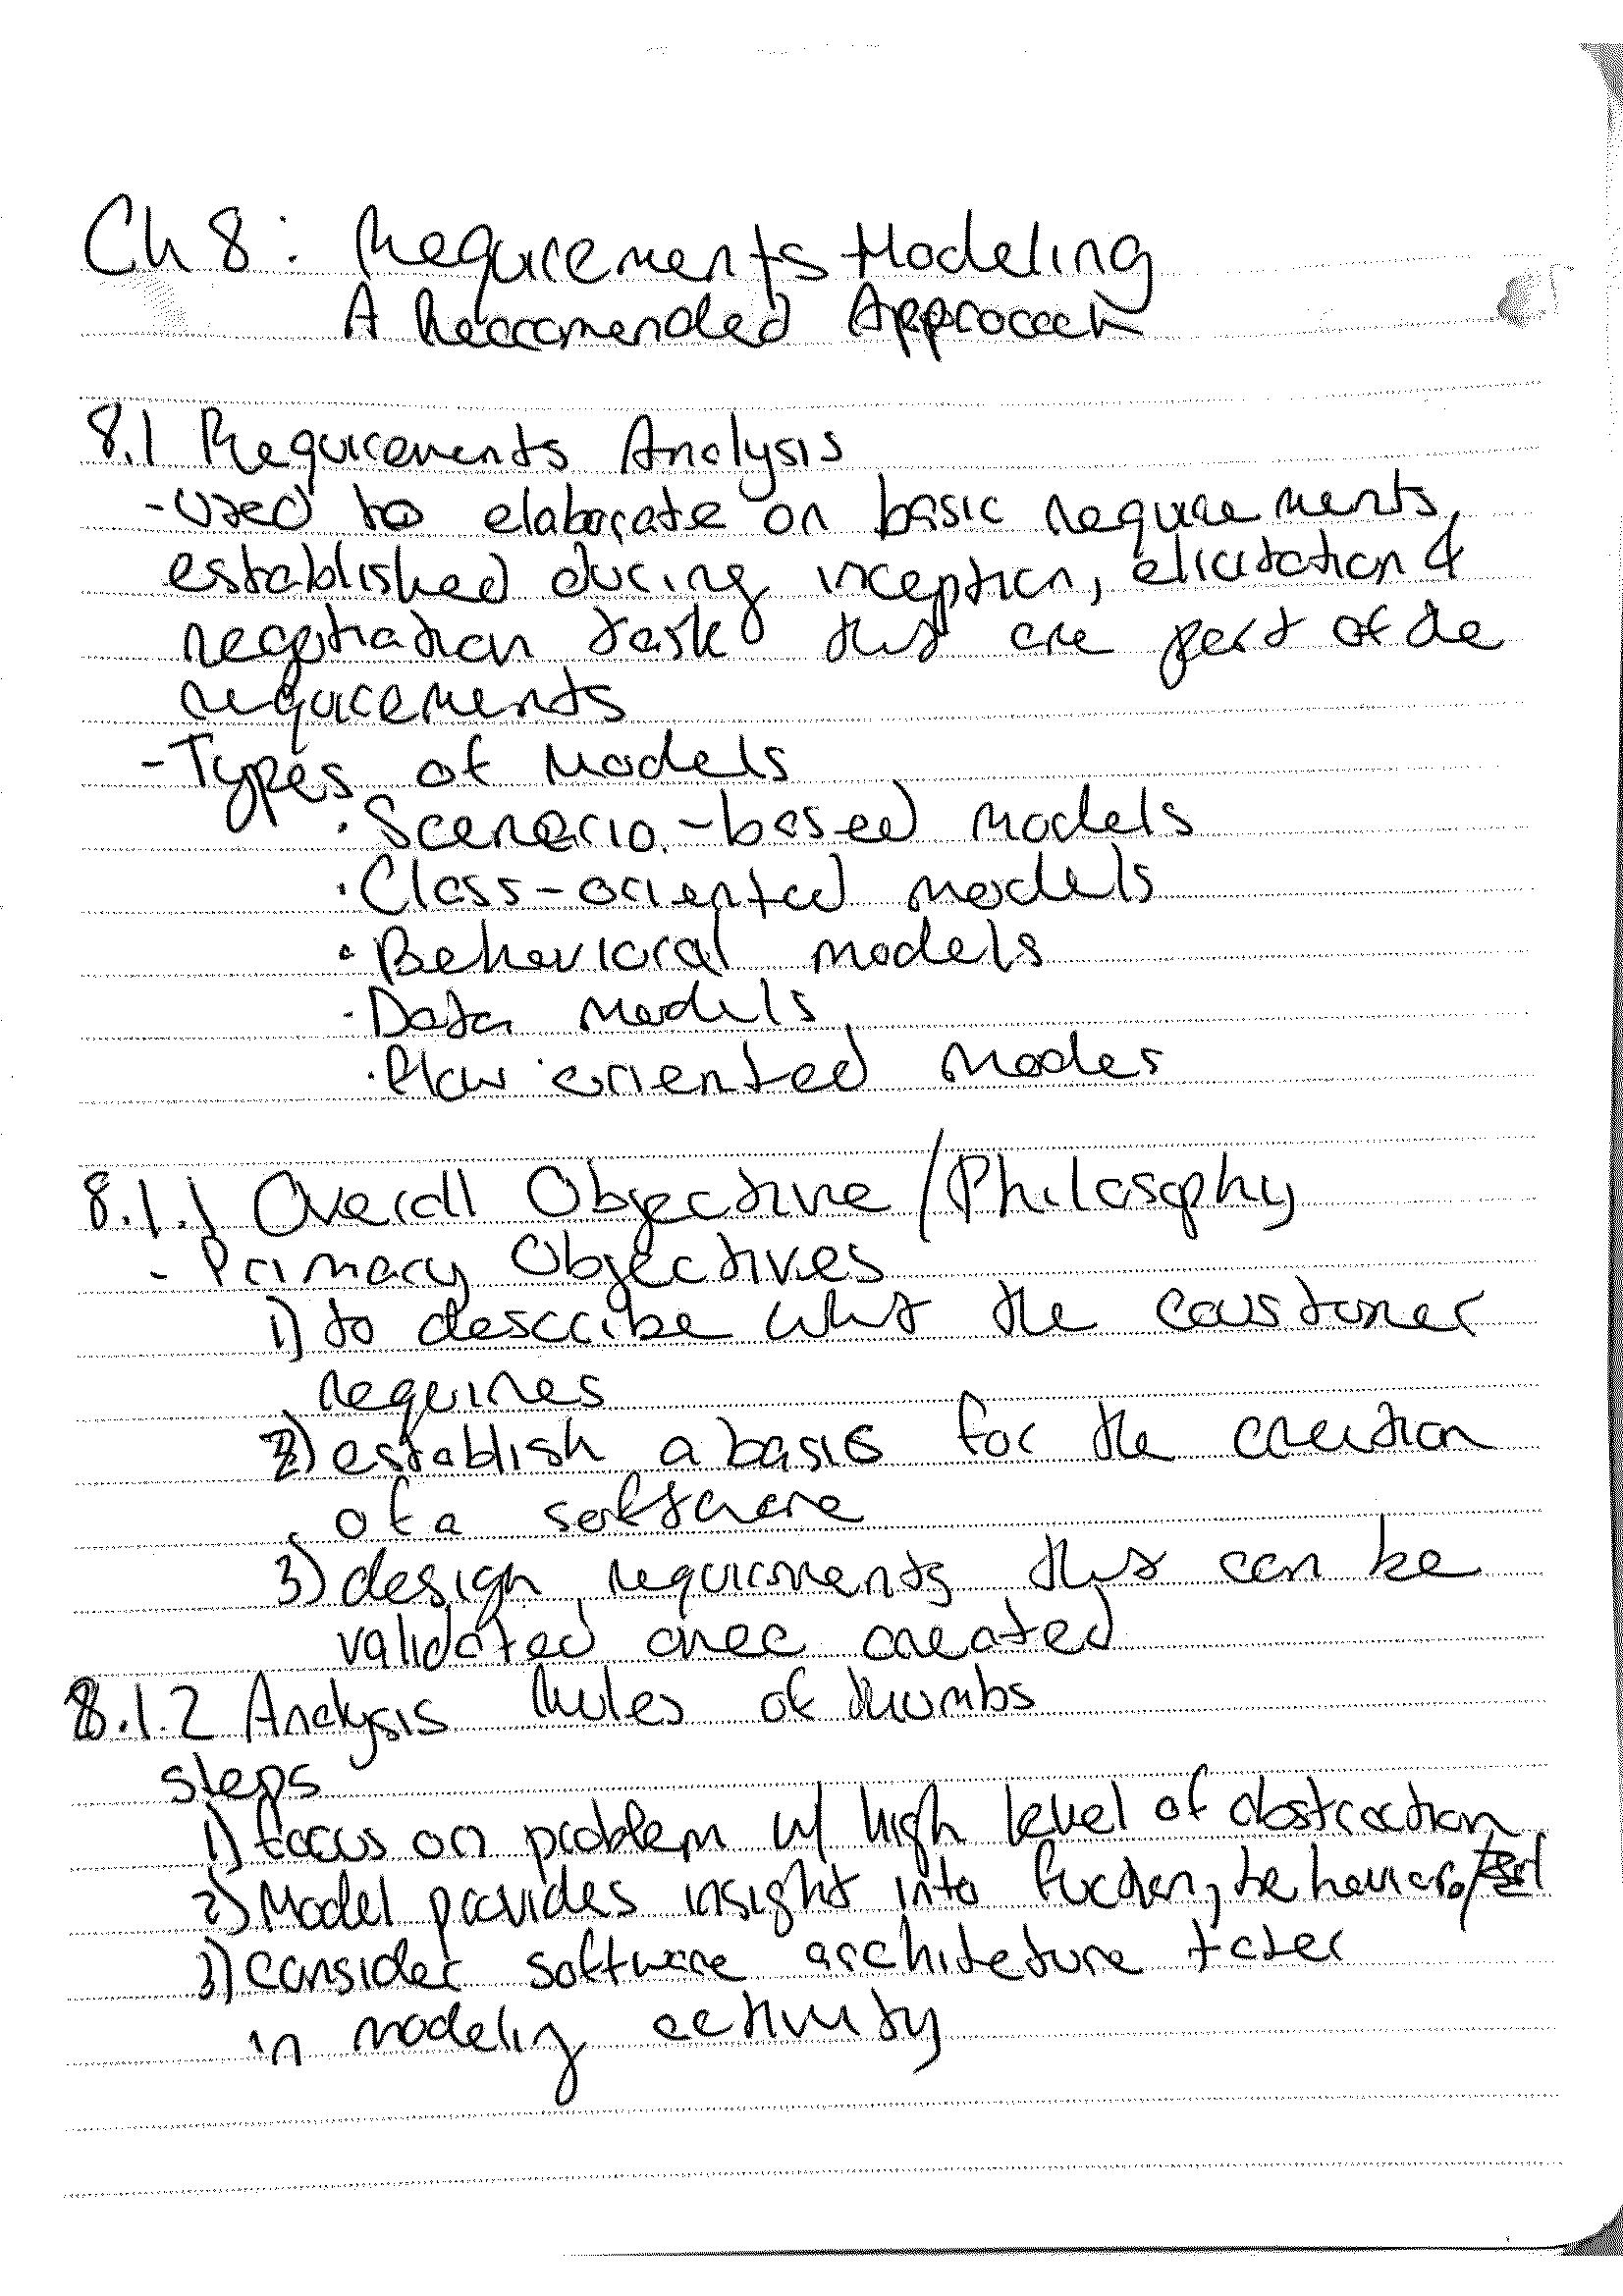 Ch 8: Requirements Modeling
A Reccomended Approach
8.1 Requirements Analysis
- Used to elaborate on basic requirements,
established during inception, elicitation &
negotiation task that are part of the
requirements
- Types of Models
· Scenario-based models
· Class-oriented models
· Behavioral models
· Data models
· Flow oriented modes
8.1.1 Overall Objective/Philosophy
- Primary Objectives
1) to describe what the customer
requires
2) establish a basis for the creation
of a software
3) design requirments that can be
validated once created
8.1.2 Analysis Rules of thumbs
steps
1) focus on problem w/ high level of abstraction
2) Model provides insight into fuction, behavior,
3) consider software architeture later
in modeling activity